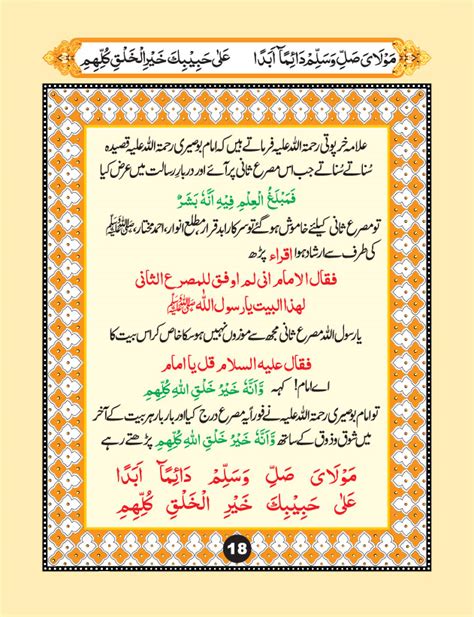 مَوْلَایَ صَلِّ وَسَلِّمْ دَائِمًآ اَبَدًا عَلٰی حَبِیْبِكَ خَیْرِ الْخَلْقِ کُلِّهِمِ
علامہ خرپوتی رحمۃ اللہ علیہ فرماتے ہیں کہ امام بوصیری رحمۃ اللہ علیہ قصیدہ
سُناتے سُناتے جب اس مصرع ثانی پر آئے اور دربارِ رسالت میں عرض کیا
فَمَبْلَغُ الْعِلْمِ فِیْهِ اَنَّهٗ بَشَرٌ
تو مصرع ثانی کیلئے خاموش ہوگئے تو سرکار ابد قرار، مطلع انوار، احمد مختار، ﷺ
کی طرف سے ارشاد ہوا اقراء پڑھ
فقال الامام انی لم اوفق للمصرع الثانی
لھذا البیت یارسول اللّٰه ﷺ
یارسول اللہ مصرع ثانی مجھ سے موزوں نہیں ہوسکا خاص کر اس بیت کا
فقال علیه السلام قل یا امام
اے امام! کہہ وَاَنَّهٗ خَیْرُ خَلْقِ اللهِ کُلِّهِمِ
تو امام بوصیری رحمۃ اللہ علیہ نے فوراً یہ مصرع درج کیا اور بار بار ہر بیت کے آخر
میں شوق و ذوق کے ساتھ وَاَنَّهٗ خَیْرُ خَلْقِ اللهِ کُلِّهِمِ پڑھتے رہے
مَوْلَایَ صَلِّ وَسَلِّمْ دَائِمًا اَبَدًا
عَلٰی حَبِیْبِكَ خَیْرِ الْخَلْقِ کُلِّهِمِ
18